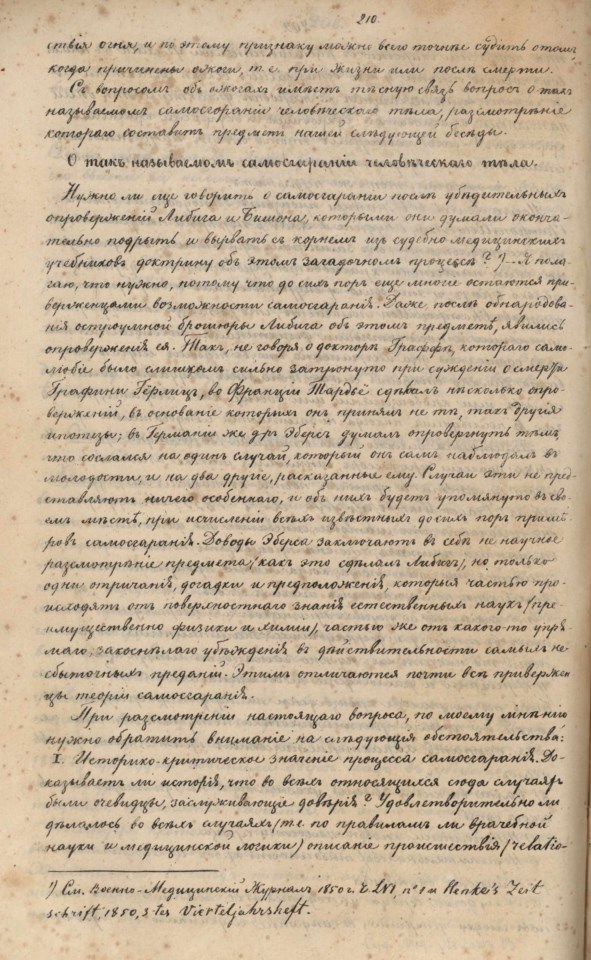 210.
ствія огня, и по этому признаку можно всего точнѣе судить о томъ,
когда причинены ожоги, т. е. при жизни или послѣ смерти.
Съ вопросомъ объ ожогахъ имѣетъ тѣсную связь вопросъ о такъ
называемомъ самосгараніи человѣческаго тѣла, разсмотрѣніе
котораго составитъ предметъ нашей слѣдующей бесѣды.
О такъ называемомъ самосгараніи человѣческаго тѣла.
Нужно ли еще говорить о самосгараніи послѣ убѣдительныхъ
опроверженій Либига и Бишофа, которыми они думали оконча-
тельно подрыть и вырвать съ корнемъ изъ судебно медицинскихъ
учебниковъ доктрину объ этомъ загадочномъ процессѣ? ¹) — Я пола-
гаю, что нужно, потому что до сихъ поръ еще многіе остаются при-
верженцами возможности самосгаранія. Даже послѣ обнародова-
нія остроумной брошюры Либига объ этомъ предметѣ, явились
опроверженія ея. Такъ, не говоря о докторѣ Граффѣ, котораго само-
любіе было слишкомъ сильно затронуто при сужденіи о смерти
Графини Гёрлицъ, во Франціи Тардьё сдѣлалъ нѣсколько опро-
верженій, въ основаніе которыхъ онъ принялъ не тѣ, такъ другія
ипотезы; въ Германіи же д-ръ Эберсъ думалъ опровергнуть тѣмъ,
что сослался на одинъ случай, который онъ самъ наблюдалъ въ
молодости, и на два другіе, расказанные ему. Случаи эти не пред-
ставляютъ ничего особеннаго, и объ нихъ будетъ упомянуто въ сво-
емъ мѣстѣ, при исчисленіи всѣхъ извѣстныхъ до сихъ поръ примѣ-
ровъ самосгаранія. Доводы Эберса заключаютъ въ себѣ не научное
разсмотрѣніе предмета (какъ это сдѣлалъ Либигъ), но только
одни отричанія, догадки и предположенія, которыя частью про-
исходятъ отъ поверхностнаго знанія естественныхъ наукъ (пре-
имущественно физики и химіи), частью же отъ какого-то упря-
маго, закоснѣлаго убѣжденія въ дѣйствительности самыхъ не-
сбыточныхъ преданій. Этимъ отличаются почти всѣ привержен-
цы теоріи самосгаранія.
При разсмотреніи настоящаго вопроса, по моему мнѣнію
нужно обратить вниманіе на слѣдующія обстоятельства:
I. Историко-критическое значеніе процесса самосгаранія. До-
казываетъ ли исторія, что во всѣхъ относящихся сюда случаяхъ
были очевидцы, заслуживающіе довѣрія? Удовлетворительно ли
дѣлалось во всѣхъ случаяхъ (т. е. по правиламъ ли врачебной
науки и медицинской логики) описаніе происшествія (relatio-
¹) См. Военно-Медицинскій Журналъ 1850 г. Ч. LVI, № 1 и Henke's Zeit
schrift, 1850, 3tes Vierteljahrsheft.